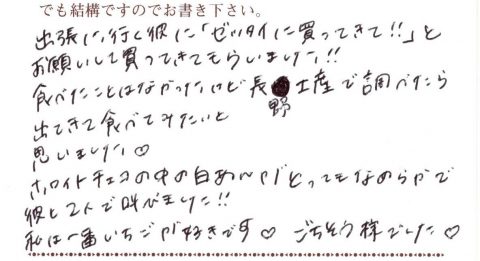 でも結構ですのでお書き下さい。
出張に行く彼に「ゼッタイに買ってきて!!」と
お願いして買ってきてもらいました!!
食べたことはなかったけど長野土産で調べたら
出てきて食べてみたいと
思いました♡
ホワイトチョコの中の白あんがとってもなめらかで
彼と2人で叫びました!!
私は一番いちごが好きです♡ ごちそう様でした♡